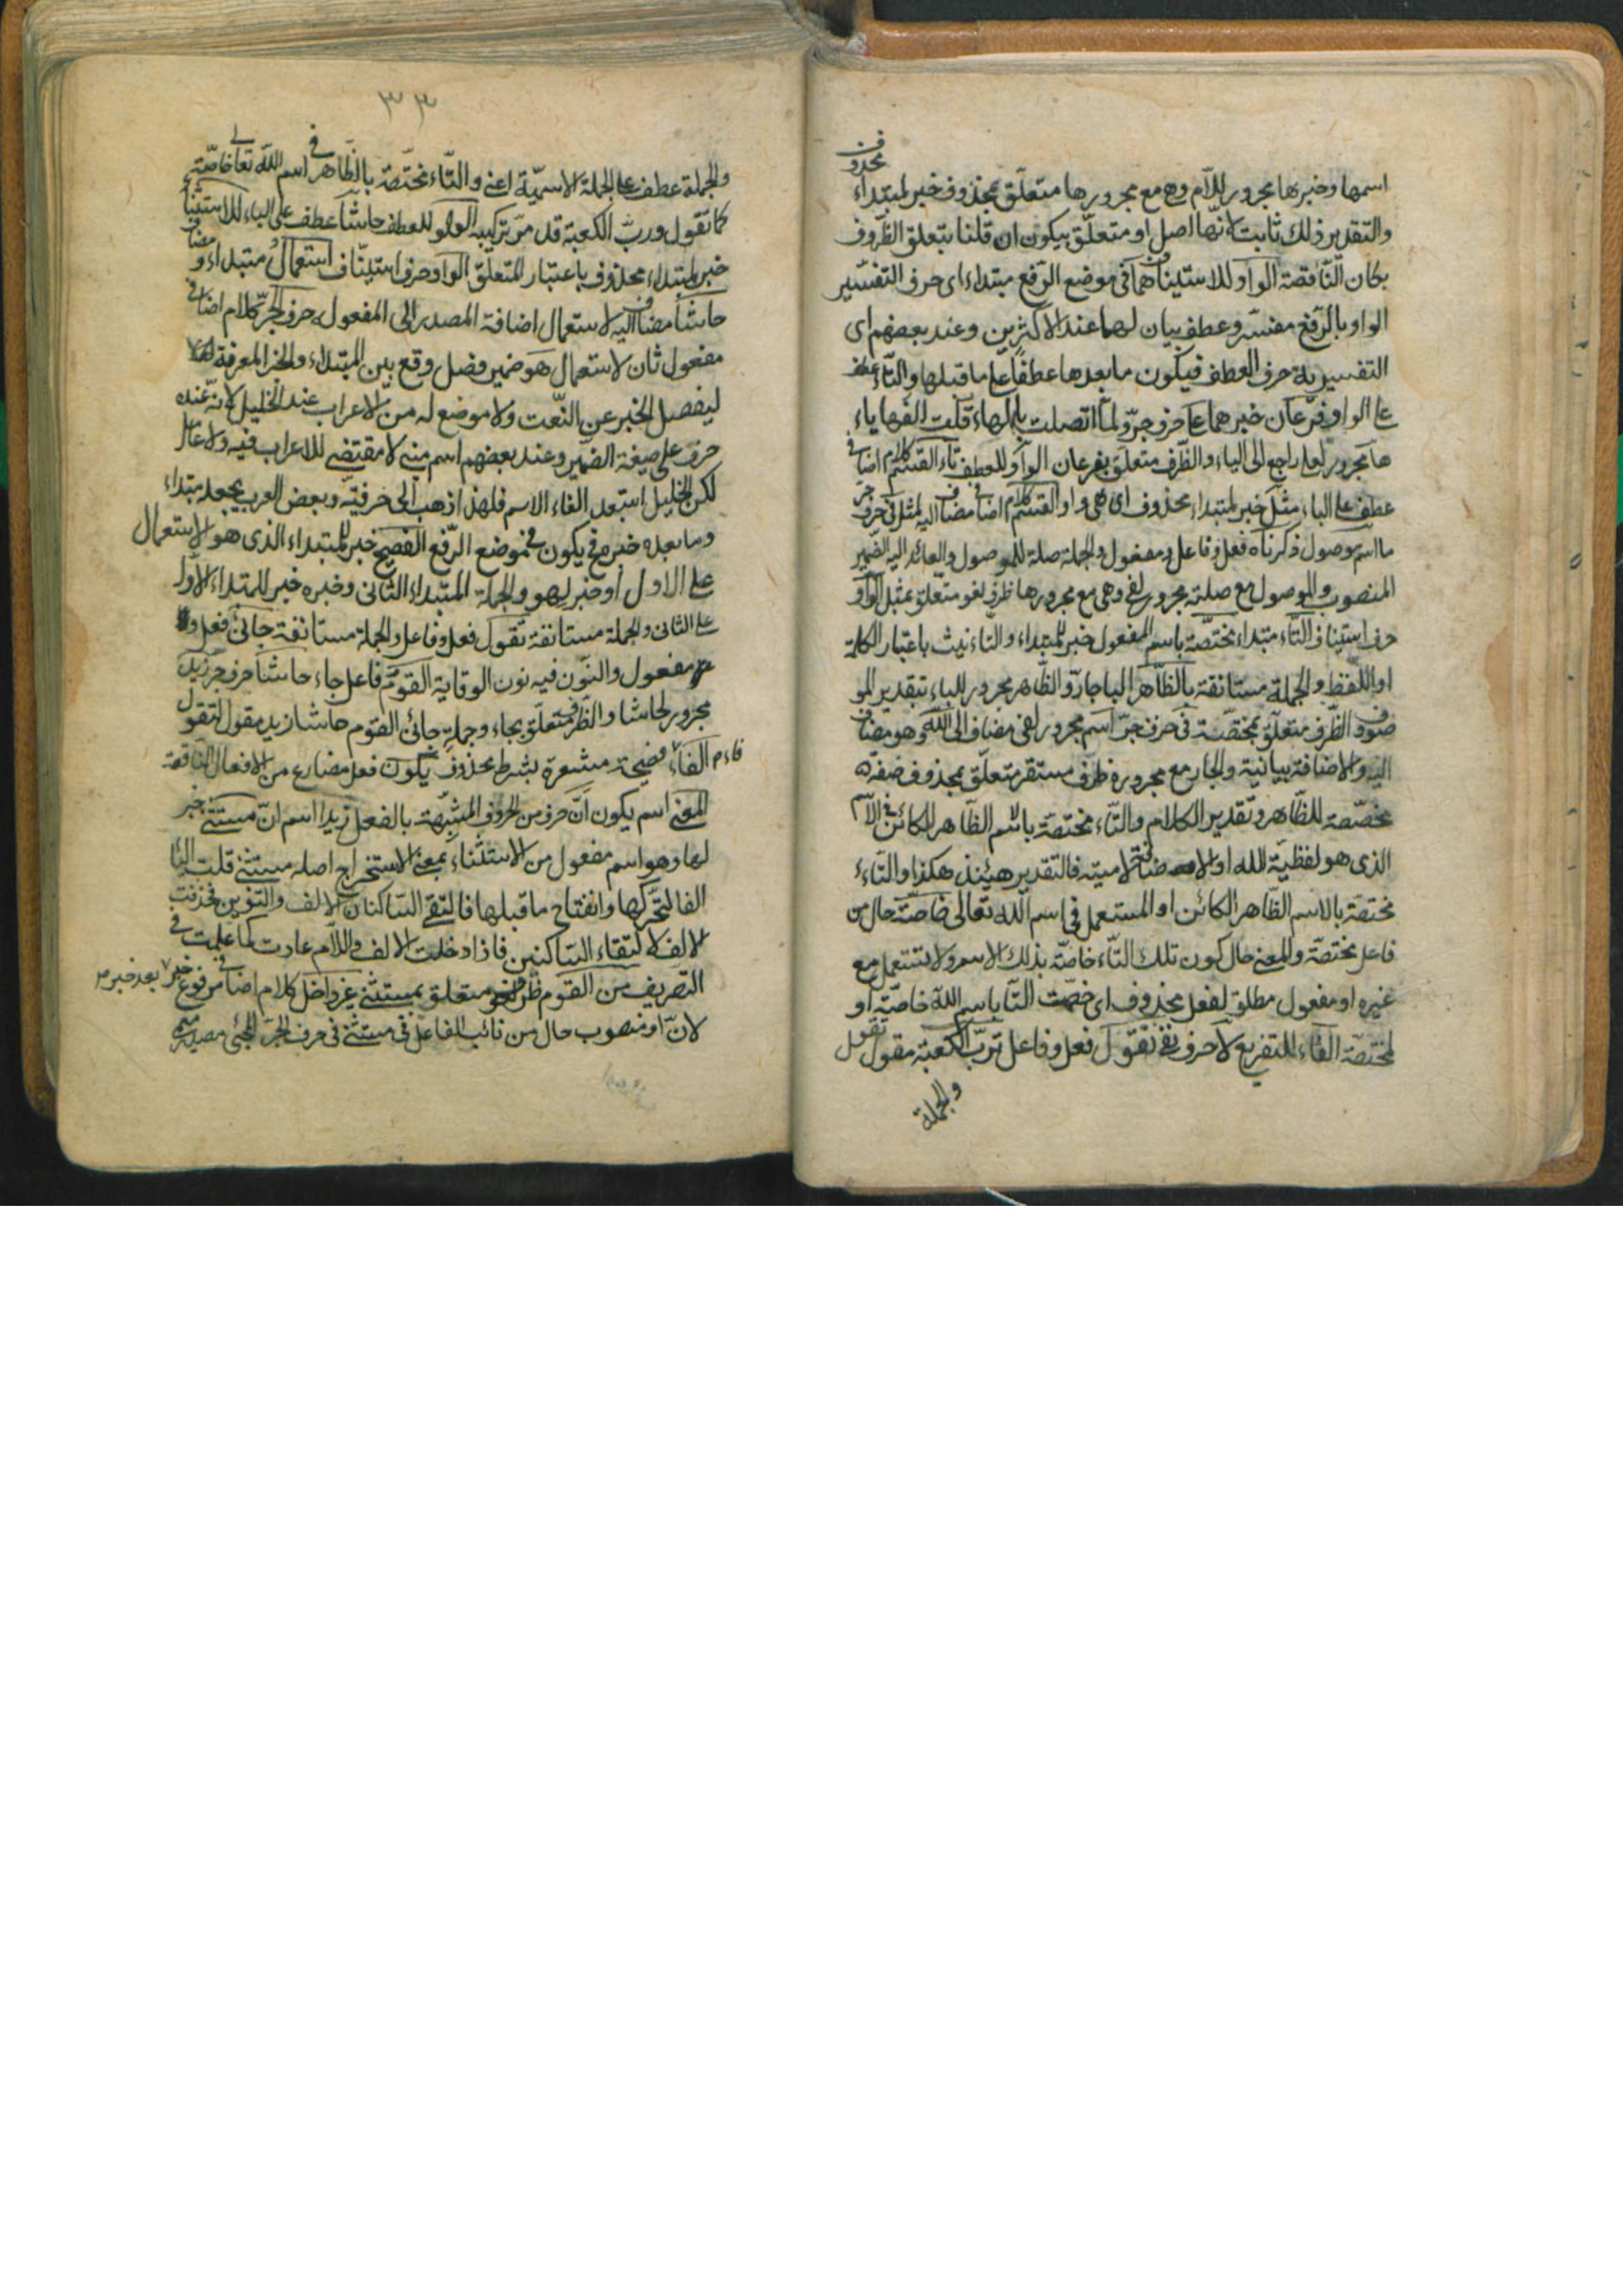 محذوف
اسمها وخبرها مجرور للام وهي مع مجرورها متعلق بمحذوف خبر لمبتداء
والتقدير ذلك ثابت لانها اصل او متعلق بيكون ان قلنا بتعلق الظروف
بكان الناقصة الواو للاستيناف هما في موضع الرفع مبتداء اى حرف التفسير
الواو بالرفع مفسر وعطف بيان لهما عند الاكثرين وعند بعضهم اى
التفسيرية حرف العطف فيكون ما بعدها عطفا على ما قبلها والتاء عطف
على الواو فرعان خبر هما على حرف جر ولما اتصلت بالهاء قلبت الفها ياء
ها مجرور لعلى راجع الى الباء والظرف متعلق بفرعان الواو للعطف تاء القسم كلام اضافي
عطف على الباء مثل خبر لمبتداء محذوف اى هي واو القسم كلام اضافي مضاف اليه لمثل في حرف جر
ما اسم موصول ذكرناه فعل وفاعل ومفعول والجملة صلة للموصول والعائد اليه الضمير
المنصوب والموصول مع صلته مجرور لفي وهي مع مجرورها ظرف لغو متعلق بمثل الواو
حرف استيناف التاء مبتداء مختصة باسم المفعول خبر للمبتداء والتاءنيث باعتبار الكلمة
او اللفظ والجملة مستانفة بالظاهر الباجار والظاهر مجرور للباء بتقدير المو
صوف الظرف متعلق بمختصة في حرف جر اسم مجرور لفي مضاف الى الله وهو مضاف
اليه والاضافة بيانية والجار مع مجروره ظرف مستقر متعلق بمحذوف صفة
مخصصة للظاهر وتقدير الكلام والتاء مختصة بالاسم الظاهر الكائن في الاسم
الذى هو لفظية الله او الاضافة لامية فالتقدير هيئذ هكذا والتاء
مختصة بالاسم الظاهر الكائن او المستعمل في اسم الله تعالى خاصة حال من
فاعل مختصة والمعنى حال كون تلك التاء خاصة بذلك الاسم ولا تستعمل مع
غيره او مفعول مطلق لفعل محذوف اى خصت التا باسم الله خاصة او
لمختصة الفاء للتفريع لا حرف نفي تقول فعل وفاعل ترب الكعبة مقول تقول
والجملة
٣٣
والجملة عطف على الجملة الاسمية اعني والتاء مختصة بالظاهر في اسم الله تعالى خاصة
كما تقول ورب الكعبة قد مر تركيبه الواو للعطف حاشا عطف على الباء للاستثناء
خبر لمبتداء محذوف باعتبار المتعلق الواو حرف استيناف استعمال مبتداء و مضاف
حاشا مضاف اليه لاستعمال اضافة المصدر الى المفعول حرف الجر كلام اضافي
مفعول ثان لاستعمال هو ضمير فصل وقع بين المبتداء والخبر المعرفة
ليفصل الخبر عن النعت ولا موضع له من الاعراب عند الخليل لانه عنده
حرف على صيغة الضمير وعند بعضهم اسم مبني لا مقتضى للاعراب فيه ولا عامل
لكن الخليل استبعد الغاء الاسم فلهذا ذهب الى حرفيته وبعض العرب يجعله مبتداء
وما بعده خبره فيكون في موضع الرفع الفصيح خبر للمبتداء الذى هو الاستعمال
على الاول او خبر لهو والجملة المبتداء الثاني وخبره خبر للمبتداء الاول
على الثاني والجملة مستانفة تقول فعل وفاعل والجملة مستانفة جائني فعل و
مفعول والنون فيه نون الوقاية القوم فاعل جاء حاشا حرف جر زيد
مجرور لحاشا والظرف متعلق بجاء وجملة جائني القوم حاشا زيد مقول لتقول
الفاء فصيحة مشعرة بشرط محذوف يكون فعل مضارع من الافعال الناقصة
المعنى اسم يكون ان حرف من الحروف المشبهة بالفعل زيدا اسم ان مستثنى خبر
لها وهو اسم مفعول من الاستثناء بمعنى الاستخراج اصله مستثنى قلبت اليا
الفا لتحركها وانفتاح ما قبلها فالتقى الساكنان الالف والتنوين فحذفت
الالف لالتقاء الساكنين فاذا دخلت الالف واللام عادت كما علمت في
التصريف من القوم ظرف لغو متعلق بمستثنى غير داخل كلام اضافي مرفوع خبر بعد خبر
لان او منصوب حال من نائب الفاعل في مستثنى في حرف الجر المجئ مصدر